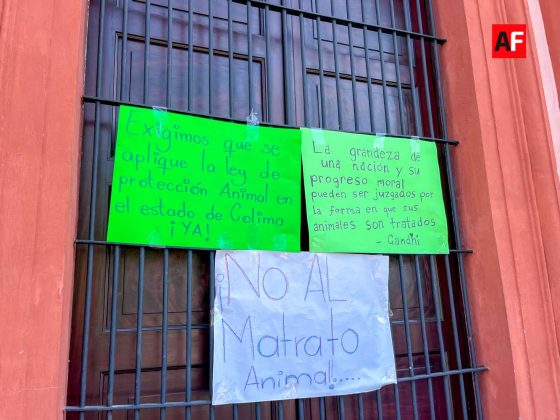 AF
Exigimos que se
aplique la ley de
protección Animal en
el estado de Colima
¡YA!
La grandeza de
una nación y su
progreso moral
pueden ser juzgados por
la forma en que sus
animales son tratados
- Gandhi
¡NO AL
Matrato
Animal!....